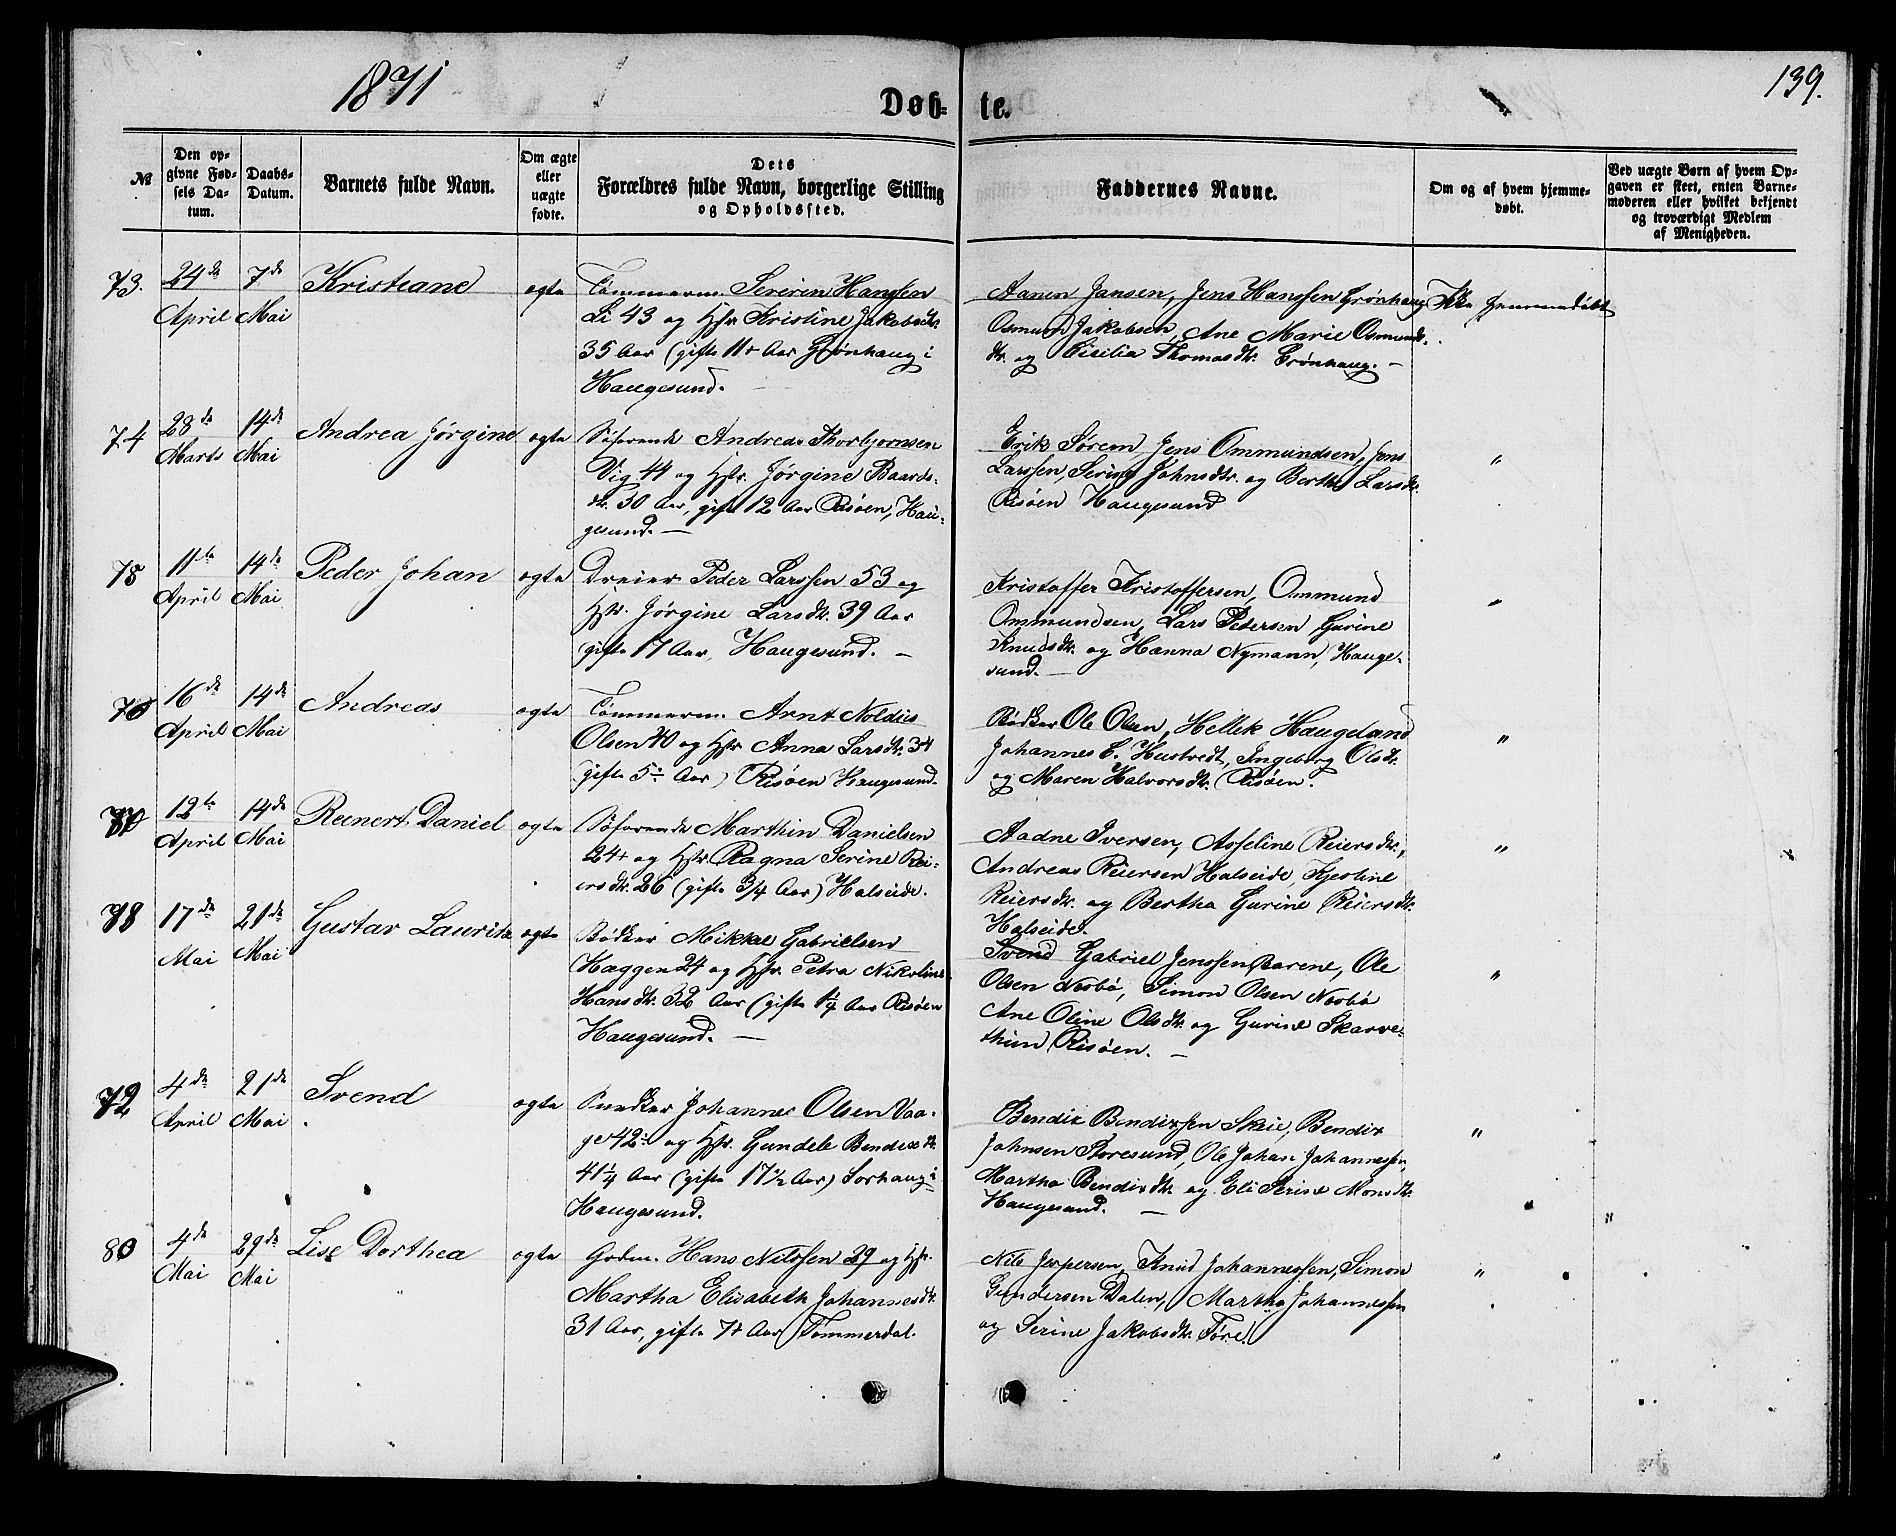 1871
139.
Døb-
te.
№
Den op-
givne Fød-
sels Da-
tum.
Daabs-
Datum.
Barnets fulde Navn.
Om ægte
eller
uægte
fødte.
Dets
Forældres fulde Navn, borgerlige Stilling
og Opholdssted.
Faddernes Navne.
Om og af hvem hjemme-
døbt.
Ved uægte Børn af hvem Op-
gaven er skeet, enten Barne-
moderen eller hvilket bekjendt
og troværdigt Medlem
af Menigheden.
73.
24de
April
7de
Mai
Kristiane
ægte
Tømmerm. Severin Hanssen
Li 43 og Hstr. Kristine Jakobsdtr.
35 Aar (gifte 11 Aar Grønhaug i
Haugesund.
Aanen Jansen, Jens Hanssen Grønhaug
Osmun Jakobsen, Ane Marie Osmunds-
dtr. og Cicilia Thomasdtr. Grønhaug.
Ikke hjemmedøbt
74
28de
Marts
14de
Mai
Andrea Jørgine
ægte
Søfarende Andreas Thorbjørnsen
Vig 44 og Hstr. Jørgine Baards-
dtr. 30 Aar, gifte 12 Aar Risøen, Hau-
gesund.
Erik Sørem, Jens Ommundsen, Jens
Larssen, Johnsdtr. og Berthe Larsdtr.
Risøen Haugesund
"
75
11te
April
14de
Mai
Peder Johan
ægte
Dreier Peder Larssen 53 og
Hstr. Jørgine Larsdtr. 39 Aar
gifte 17 Aar, Haugesund.
Kristoffer Kristoffersen, Ommund
Ommundsen, Lars Petersen Gurine
Knudsdtr. og Hanna Nymann, Hauge-
sund.
"
76
16de
April
14de
Mai
Andreas
ægte
Tømmerm. Arnt Noldus
Olsen 40 og Hstr. Anna Larsdtr. 34
(gifte 5 Aar) Risøen Haugesund.
Bødker Ole Olsen, Hellik Haugeland
Johannes E. Hustvedt, Ingeborg Olsdtr.
og Maren Halvorsdtr. Risøen.
"
77
12te
April
14de
Mai
Reinert Daniel
ægte
Søfarende Marthin Danielsen
24 og Hstr. Ragna Serine Rei-
ersdtr. 26 (gifte 3/4 Aar) Halseide.
Aadne Iversen, Asseline Reiersdtr.,
Andreas Reiersen Halseide, Kjerline
Reiersdtr. og Bertha Gurine Reiersdtr.
Halseide.
"
78
17de
Mai
21de
Mai
Gustav Lauritz
ægte
Bødker Mikkel Gabrielsen
Haggen 24 og Hstr. Petra Nikoline
Hansdtr. 32 Aar (gifte 1/4 Aar Risøen
Haugesund.
Svend Gabriel Jenssen Barene, Ole
Olsen Nesbø, Simon Olsen Nesbø
Ane Oline Olsdtr. og Gurine Skarve-
thun Risøen.
"
79
4de
April
21de
Mai
Svend
ægte
Johannes Olsen Vaa-
ge 42 og Hstr. Gundele Bendixdtr.
41 1/4 Aar (gifte 17 1/2 Aar) Sørhaug i
Haugesund.
Bendix Bendixsen Skeie, Bendix
Johnsen Storesund, Ole Johan Johannessen,
Martha Bendixdtr. og Eli Serine Monsdtr.
Haugesund.
"
"
80
4de
Mai
29de
Mai
Lise Dorthea
ægte
Gdm. Hans Nilssen 29 og Hstr.
Martha Elisabeth Johannesdtr.
31 Aar, gifte 7 Aar Tømmerdal.
Nils Jespersen, Knud Johannessen, Simon
Gundersen Dalen, Martha Johannessen
og Serine Jakobsdtr. Føre.
"